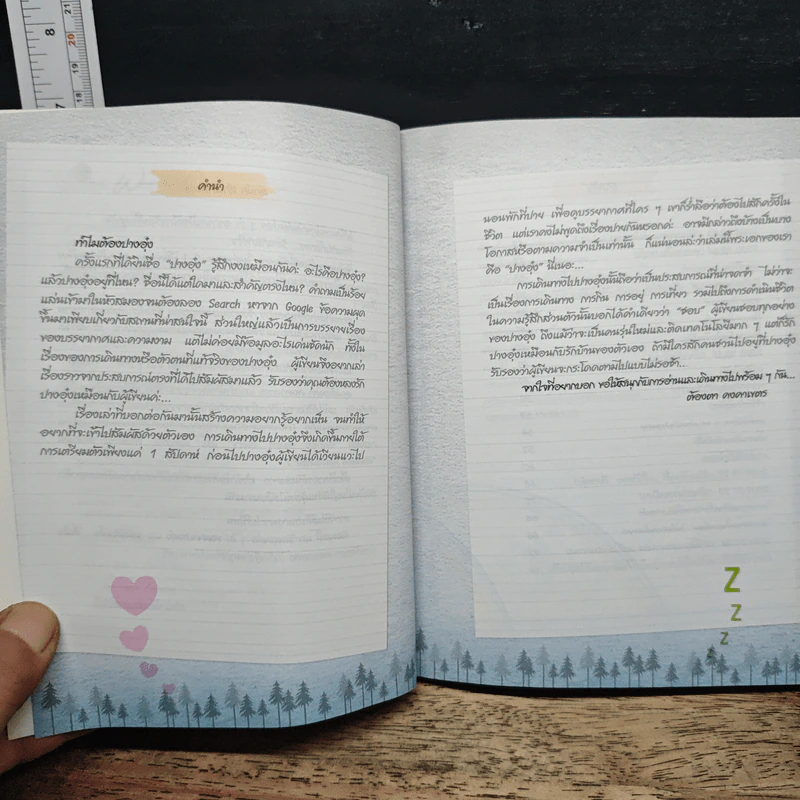 8
7
21
20
19
18
คำนำ
ทำไมต้องปางอุ๋ง
ครั้งแรกที่ได้ยินชื่อ “ปางอุ๋ง” รู้สึกงงเหมือนกันค่ะ อะไรคือปางอุ๋ง?
แล้วปางอุ๋งอยู่ที่ไหน? ชื่อนี้ได้แต่ใดมาและสำคัญตรงไหน? คำถามเป็นร้อย
แล่นเข้ามาในหัวสมองจนต้องลอง Search หาจาก Google ข้อความผุด
ขึ้นมาเพียบเกี่ยวกับสถานที่น่าสนใจนี้ ส่วนใหญ่แล้วเป็นการบรรยายเรื่อง
ของบรรยากาศและความงาม แต่ไม่ค่อยมีข้อมูลอะไรเด่นชัดนัก ทั้งใน
เรื่องของการเดินทางหรือตัวตนที่แท้จริงของปางอุ๋ง ผู้เขียนจึงอยากเล่า
เรื่องราวจากประสบการณ์ตรงที่ได้ไปสัมผัสมาแล้ว รับรองว่าคุณต้องหลงรัก
ปางอุ๋งเหมือนกับผู้เขียนค่ะ...
เรื่องเล่าที่บอกต่อกันมานั้นสร้างความอยากรู้อยากเห็น จนทำให้
อยากที่จะเข้าไปสัมผัสด้วยตัวเอง การเดินทางไปปางอุ๋งจึงเกิดขึ้นภายใต้
การเตรียมตัวเพียงแค่ 1 สัปดาห์ ก่อนไปปางอุ๋งผู้เขียนได้เวียนแวะไป
นอนพักที่ปาย เพื่อดูบรรยากาศที่ใคร ๆ เขาก็ร่ำลือว่าต้องไปสักครั้งใน
ชีวิต แต่เราคงไม่พูดถึงเรื่องปายกันหรอกค่ะ อาจมีกล่าวถึงบ้างเป็นบาง
โอกาสหรือตามความจำเป็นเท่านั้น ก็แน่นอนล่ะว่าเล่มนี้พระเอกของเรา
คือ “ปางอุ๋ง” นี่เนอะ...
การเดินทางไปปางอุ๋งนั้นถือว่าเป็นประสบการณ์ที่น่าจดจำ ไม่ว่าจะ
เป็นเรื่องการเดินทาง การกิน การอยู่ การเที่ยว รวมไปถึงการดำเนินชีวิต
ในความรู้สึกส่วนตัวนั้นบอกได้คำเดียวว่า “ชอบ” ผู้เขียนชอบทุกอย่าง
ของปางอุ๋ง ถึงแม้ว่าจะเป็นคนรุ่นใหม่และติดเทคโนโลยีมาก ๆ แต่ก็รัก
ปางอุ๋งเหมือนกับรักบ้านของตัวเอง ถ้ามีใครสักคนชวนไปอยู่ที่ปางอุ๋ง
รับรองว่าผู้เขียนจะกระโดดตามไปแบบไม่รอช้า...
จากใจที่อยากบอก ขอให้สนุกกับการอ่านและเดินทางไปพร้อม ๆ กัน...
ต้องตา คงคาเพชร
Z
Z
Z